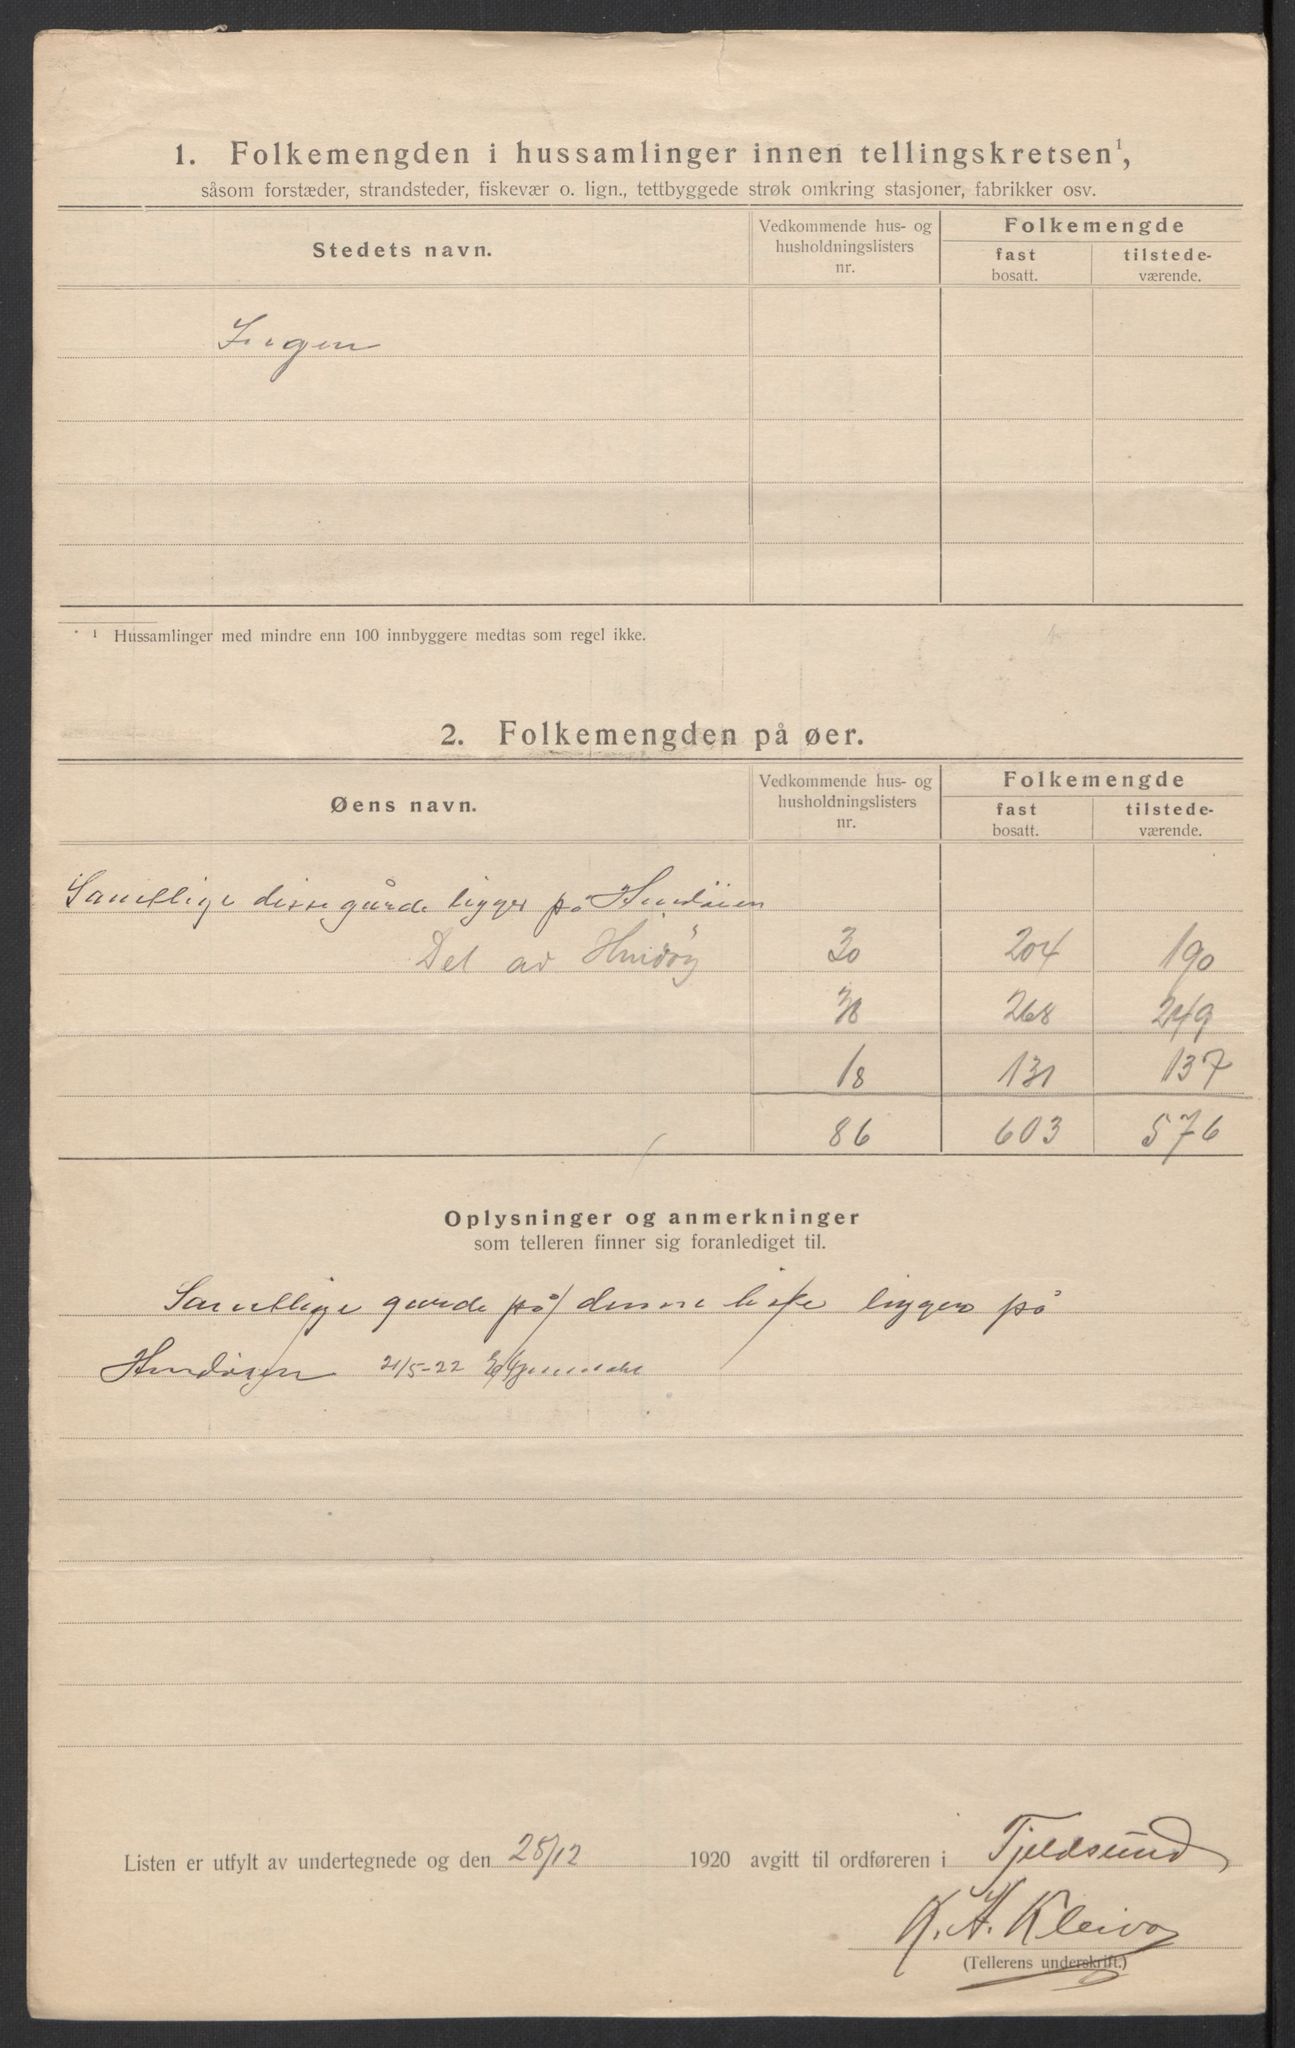 1. Folkemengden i hussamlinger innen tellingskretsen¹,
såsom forstæder, strandsteder, fiskevær o. lign., tettbyggede strøk omkring stasjoner, fabrikker osv.
Stedets navn.
Vedkommende hus- og husholdningslisters nr.
Folkemengde
fast bosatt.
tilstede-værende.
Ingen
¹ Hussamlinger med mindre enn 100 innbyggere medtas som regel ikke.
2. Folkemengden på øer.
Øens navn.
Vedkommende hus- og husholdningslisters nr.
Folkemengde
fast bosatt.
tilstede-værende.
Samtlige disse gårde ligger på Hindöien
Del av Hindöy 30 204 190
38 268 249
18 131 137
86 603 576
Oplysninger og anmerkninger
som telleren finner sig foranlediget til.
Samtlige gaarde på denne liste ligger på
Hindöyen 21/5-22
Listen er utfylt av undertegnede og den 28/12 1920 avgitt til ordføreren i Tjeldsund
K. A. Kleiva
(Tellerens underskrift.)